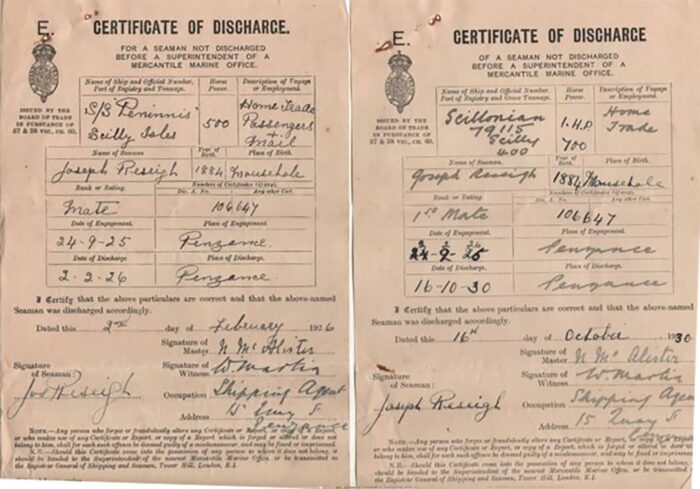 E. CERTIFICATE OF DISCHARGE.
FOR A SEAMAN NOT DISCHARGED
BEFORE A SUPERINTENDENT OF A
MERCANTILE MARINE OFFICE.
ISSUED BY THE
BOARD OF TRADE
IN PURSUANCE OF
57 & 58 VIC., CH. 60.
Name of Ship and Official Number,
Port of Registry and Tonnage.
Horse
Power.
Description of Voyage
or Employment.
S/S Peninnis
Scilly Isles
500
Home Trade
Passengers
& Mail
Name of Seaman
Year of
Birth.
Place of Birth.
Joseph Reseigh
1884
Mousehole
Rank or Rating.
Numbers of Certificates (if any).
Dis. A. No.
Any other Cert.
Mate
106647
Date of Engagement.
Place of Engagement.
24-9-25
Penzance.
Date of Discharge.
Place of Discharge.
2-2-26
Penzance.
I Certify that the above particulars are correct and that the above-named
Seaman was discharged accordingly.
Dated this 2nd day of February 1926
Signature of
Master
N McAlister
Signature
of Seaman
Jos Reseigh
Signature of
Witness
W Martin
Occupation Shipping Agent
Address 15 Quay St
Penzance
NOTE.—Any person who forges or fraudulently alters any Certificate or Report, or copy of a Report,
or who makes use of any Certificate or Report, or copy of a Report, which is forged or altered or does not
belong to him, shall for each such offence be deemed guilty of a misdemeanour, and may be fined or imprisoned.
N.B.—Should this Certificate come into the possession of any person to whom it does not belong, it
should be handed to the Superintendent of the nearest Mercantile Marine Office, or be transmitted to
the Registrar General of Shipping and Seamen, Tower Hill, London, E.1.
E. CERTIFICATE OF DISCHARGE
OF A SEAMAN NOT DISCHARGED
BEFORE A SUPERINTENDENT OF A
MERCANTILE MARINE OFFICE.
ISSUED BY THE
BOARD OF TRADE
IN PURSUANCE OF
57 & 58 VIC., CH. 60.
Name of Ship and Official Number,
Port of Registry and Gross Tonnage.
Horse
Power.
Description of Voyage
or Employment.
Scillonian
79115
Scilly
400
I.H.P
700
Home
Trade
Name of Seaman.
Year of
Birth.
Place of Birth.
Joseph Reseigh
1884
Mousehole
Rank or Rating.
Numbers of Certificates (if any).
Dis. A. No.
Any other Cert.
1st Mate
106647
Date of Engagement.
Place of Engagement.
Penzance
Date of Discharge.
Place of Discharge.
16-10-30
Penzance
I Certify that the above particulars are correct and that the above-named
Seaman was discharged accordingly.
Dated this 16th day of October 1930
Signature of
Master
N McAlister
Signature
of Seaman:
Joseph Reseigh
Signature of
Witness
W Martin
Occupation Shipping Agent
Address 15 Quay St
NOTE.—Any person who forges or fraudulently alters any Certificate or Report, or copy of a Report,
or who makes use of any Certificate or Report, or copy of a Report, which is forged or altered or does not
belong to him, shall for each such offence be deemed guilty of a misdemeanour, and may be fined or imprisoned
N.B.—Should this Certificate come into the possession of any person to whom it does not belong, it
should be handed to the Superintendent of the nearest Mercantile Marine Office, or be transmitted to
the Registrar General of Shipping and Seamen, Tower Hill, London, E.1.